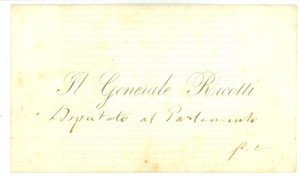 Il Generale Ricotti
Deputato al Parlamento
p. c.